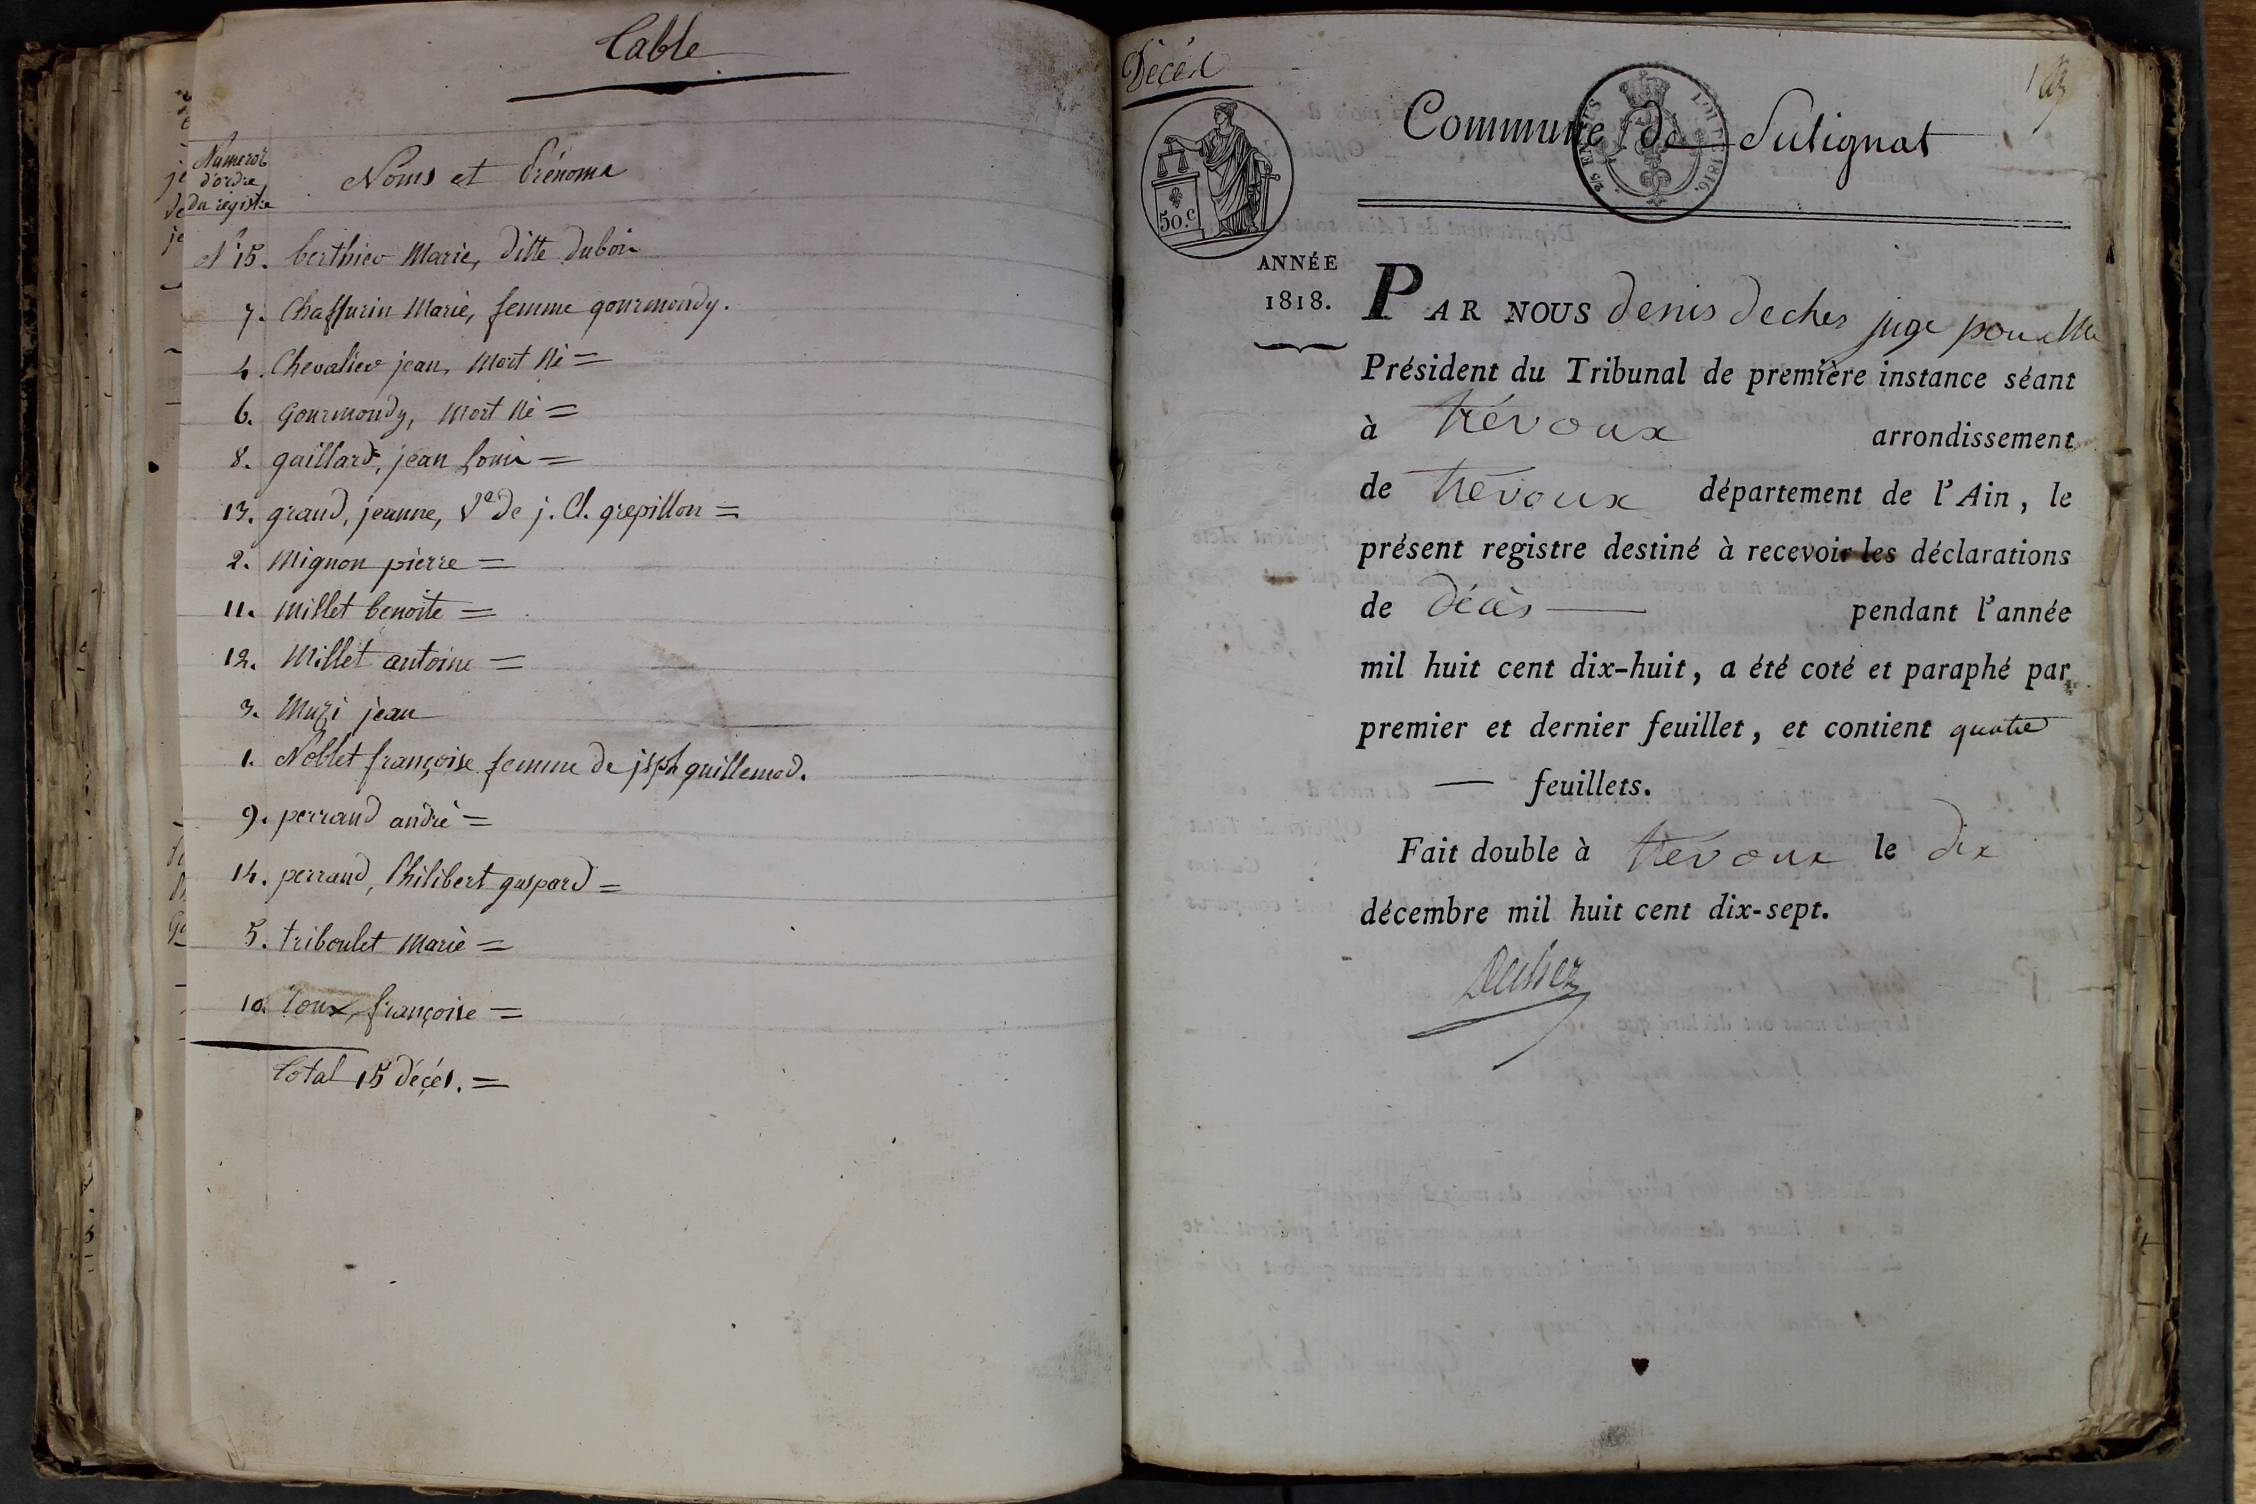 Table
Numeros
d'ordre
du registre
Noms et Prénoms
N° 15. berthier Marie, ditte dubois
7. Chaffurin Marie, femme gourmondy.
4. Chevalier jean, Mort Né =
6. Gourmondy, Mort Né =
8. gaillard, jean Louis =
13. grand, jeanne, Ve de j. Cl. grepillon =
2. Mignon pierre =
11. Millet benoite =
12. Millet antoine =
3. Muzi jean
1. Noblet françoise femme de jsph guillemod.
9. perrand andré =
14. perrand, Philibert gaspard =
5. triboulet Marie =
10. Toux, françoise =
Total 15 décés. =
Décés
Commune de Sulignat
50. c
ANNÉE
1818.
PAR NOUS denis dechez juge pour Mr
Président du Tribunal de première instance séant
à trévoux arrondissement
de trévoux département de l'Ain, le
présent registre destiné à recevoir les déclarations
de décès pendant l'année
mil huit cent dix-huit, a été coté et paraphé par
premier et dernier feuillet, et contient quatre
— feuillets.
Fait double à trévoux le dix
décembre mil huit cent dix-sept.
Dechez